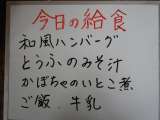 今日の給食
和風ハンバーグ
とうふのみそ汁
かぼちゃのいとこ煮
ご飯 牛乳